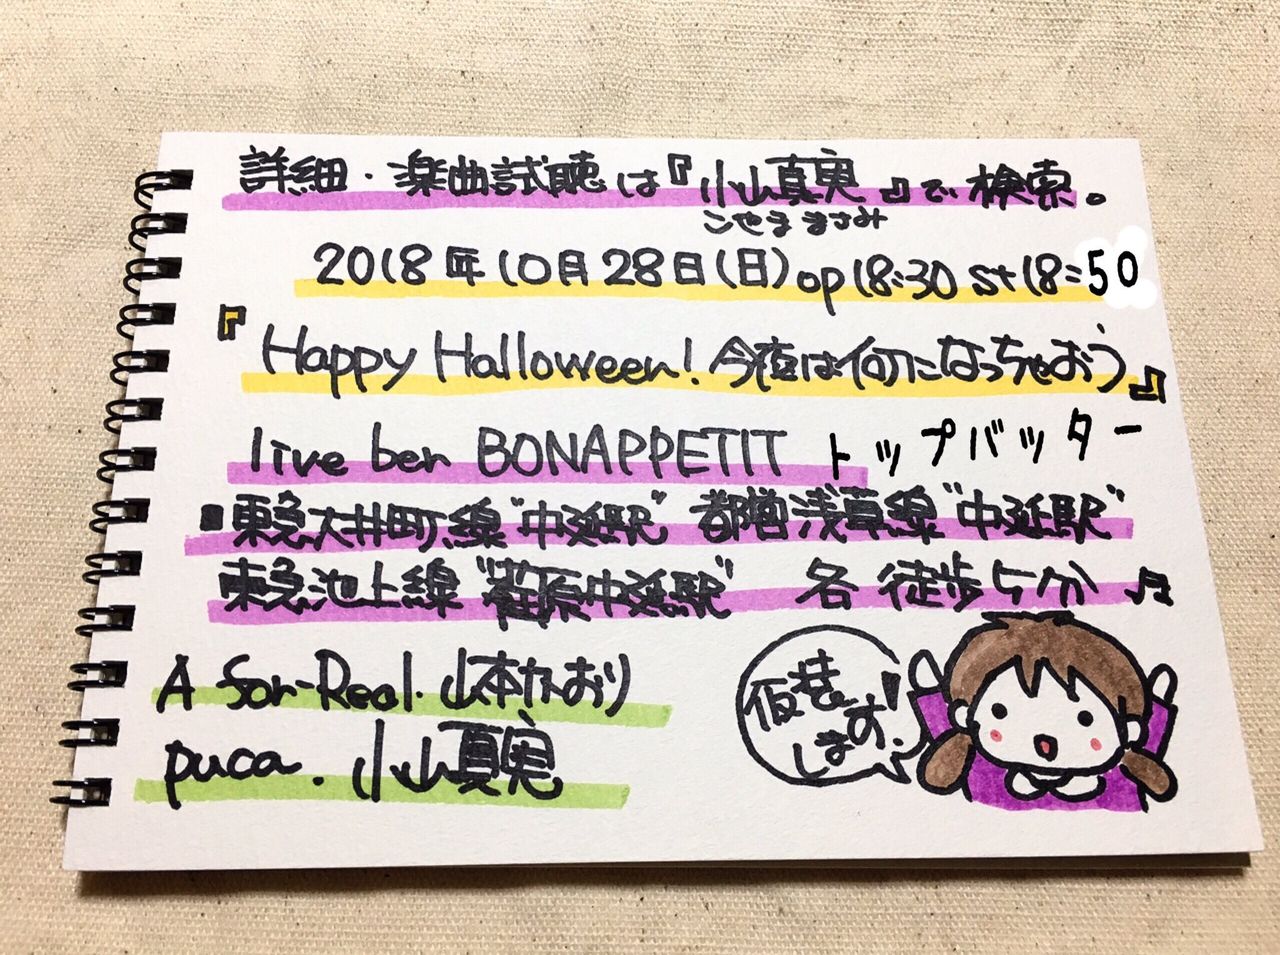 詳細・楽曲試聴は『小山真実』で検索。
こやま まさみ
2018年10月28日(日)op18:30 st18:50
『Happy Halloween!今夜は何になっちゃおう』
live ber BONAPPETIT トップバッター
■東急大井町線"中延駅" 都営浅草線"中延駅"
東急池上線"荏原中延駅" 各 徒歩5分♬
A for-Real. 山本かおり
puca. 小山真実
仮装
します!